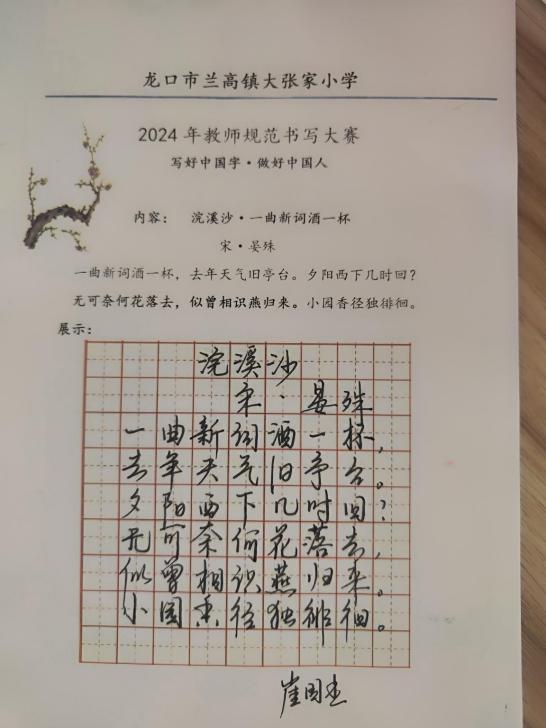 龙口市兰高镇大张家小学
2024年教师规范书写大赛
写好中国字·做好中国人
内容： 浣溪沙·一曲新词酒一杯
宋·晏殊
一曲新词酒一杯，去年天气旧亭台。夕阳西下几时回？
无可奈何花落去，似曾相识燕归来。小园香径独徘徊。
展示：
浣溪沙
宋·晏殊
一曲新词酒一杯，
去年天气旧亭台。
夕阳西下几时回？
无可奈何花落去，
似曾相识燕归来。
小园香径独徘徊。